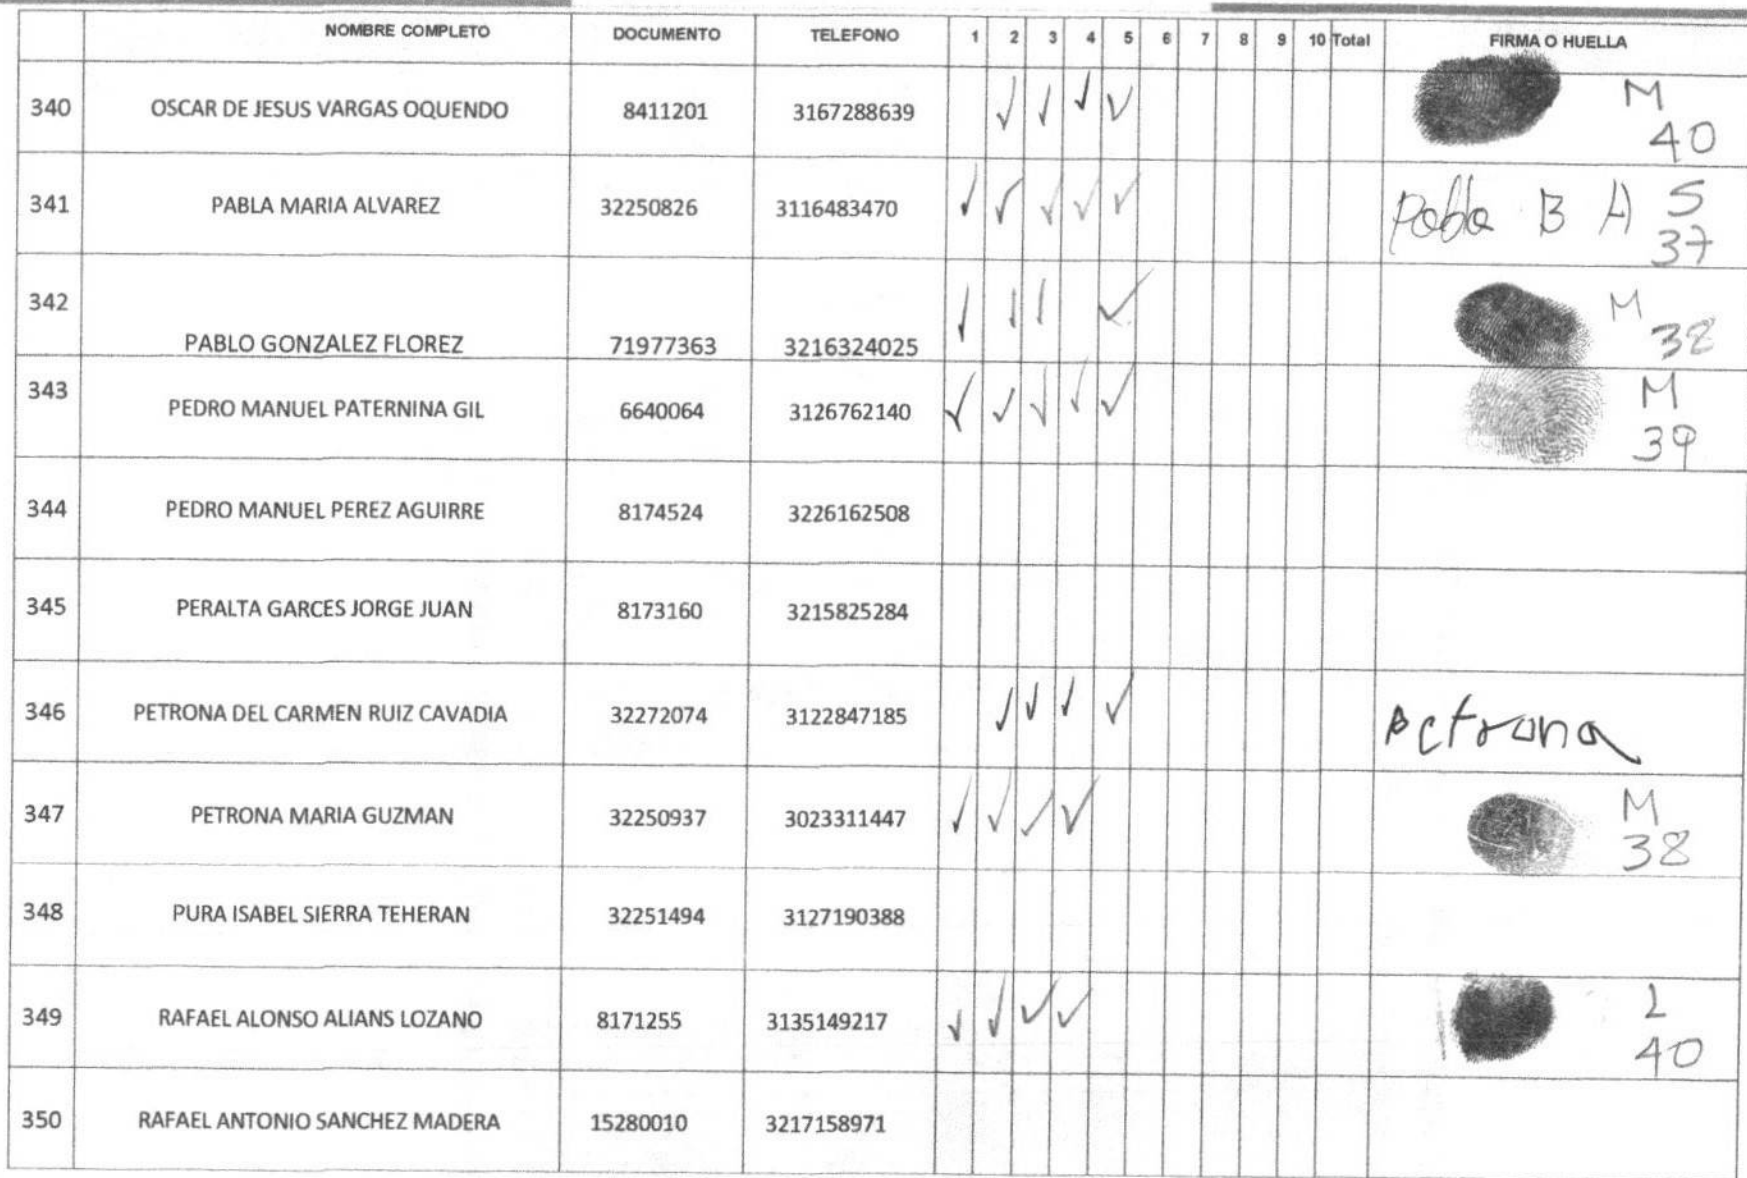 NOMBRE COMPLETO DOCUMENTO TELEFONO 1 2 3 4 5 6 7 8 9 10 Total FIRMA O HUELLA
340 OSCAR DE JESUS VARGAS OQUENDO 8411201 3167288639 ✓ ✓ ✓ ✓ M
40
341 PABLA MARIA ALVAREZ 32250826 3116483470 ✓ ✓ ✓ ✓ ✓ Pabla B A S
37
342 PABLO GONZALEZ FLOREZ 71977363 3216324025 ✓ ✓ ✓ ✓ M
38
343 PEDRO MANUEL PATERNINA GIL 6640064 3126762140 ✓ ✓ ✓ ✓ ✓ M
39
344 PEDRO MANUEL PEREZ AGUIRRE 8174524 3226162508
345 PERALTA GARCES JORGE JUAN 8173160 3215825284
346 PETRONA DEL CARMEN RUIZ CAVADIA 32272074 3122847185 ✓ ✓ ✓ ✓ Petrona
347 PETRONA MARIA GUZMAN 32250937 3023311447 ✓ ✓ ✓ ✓ M
38
348 PURA ISABEL SIERRA TEHERAN 32251494 3127190388
349 RAFAEL ALONSO ALIANS LOZANO 8171255 3135149217 ✓ ✓ ✓ ✓ L
40
350 RAFAEL ANTONIO SANCHEZ MADERA 15280010 3217158971